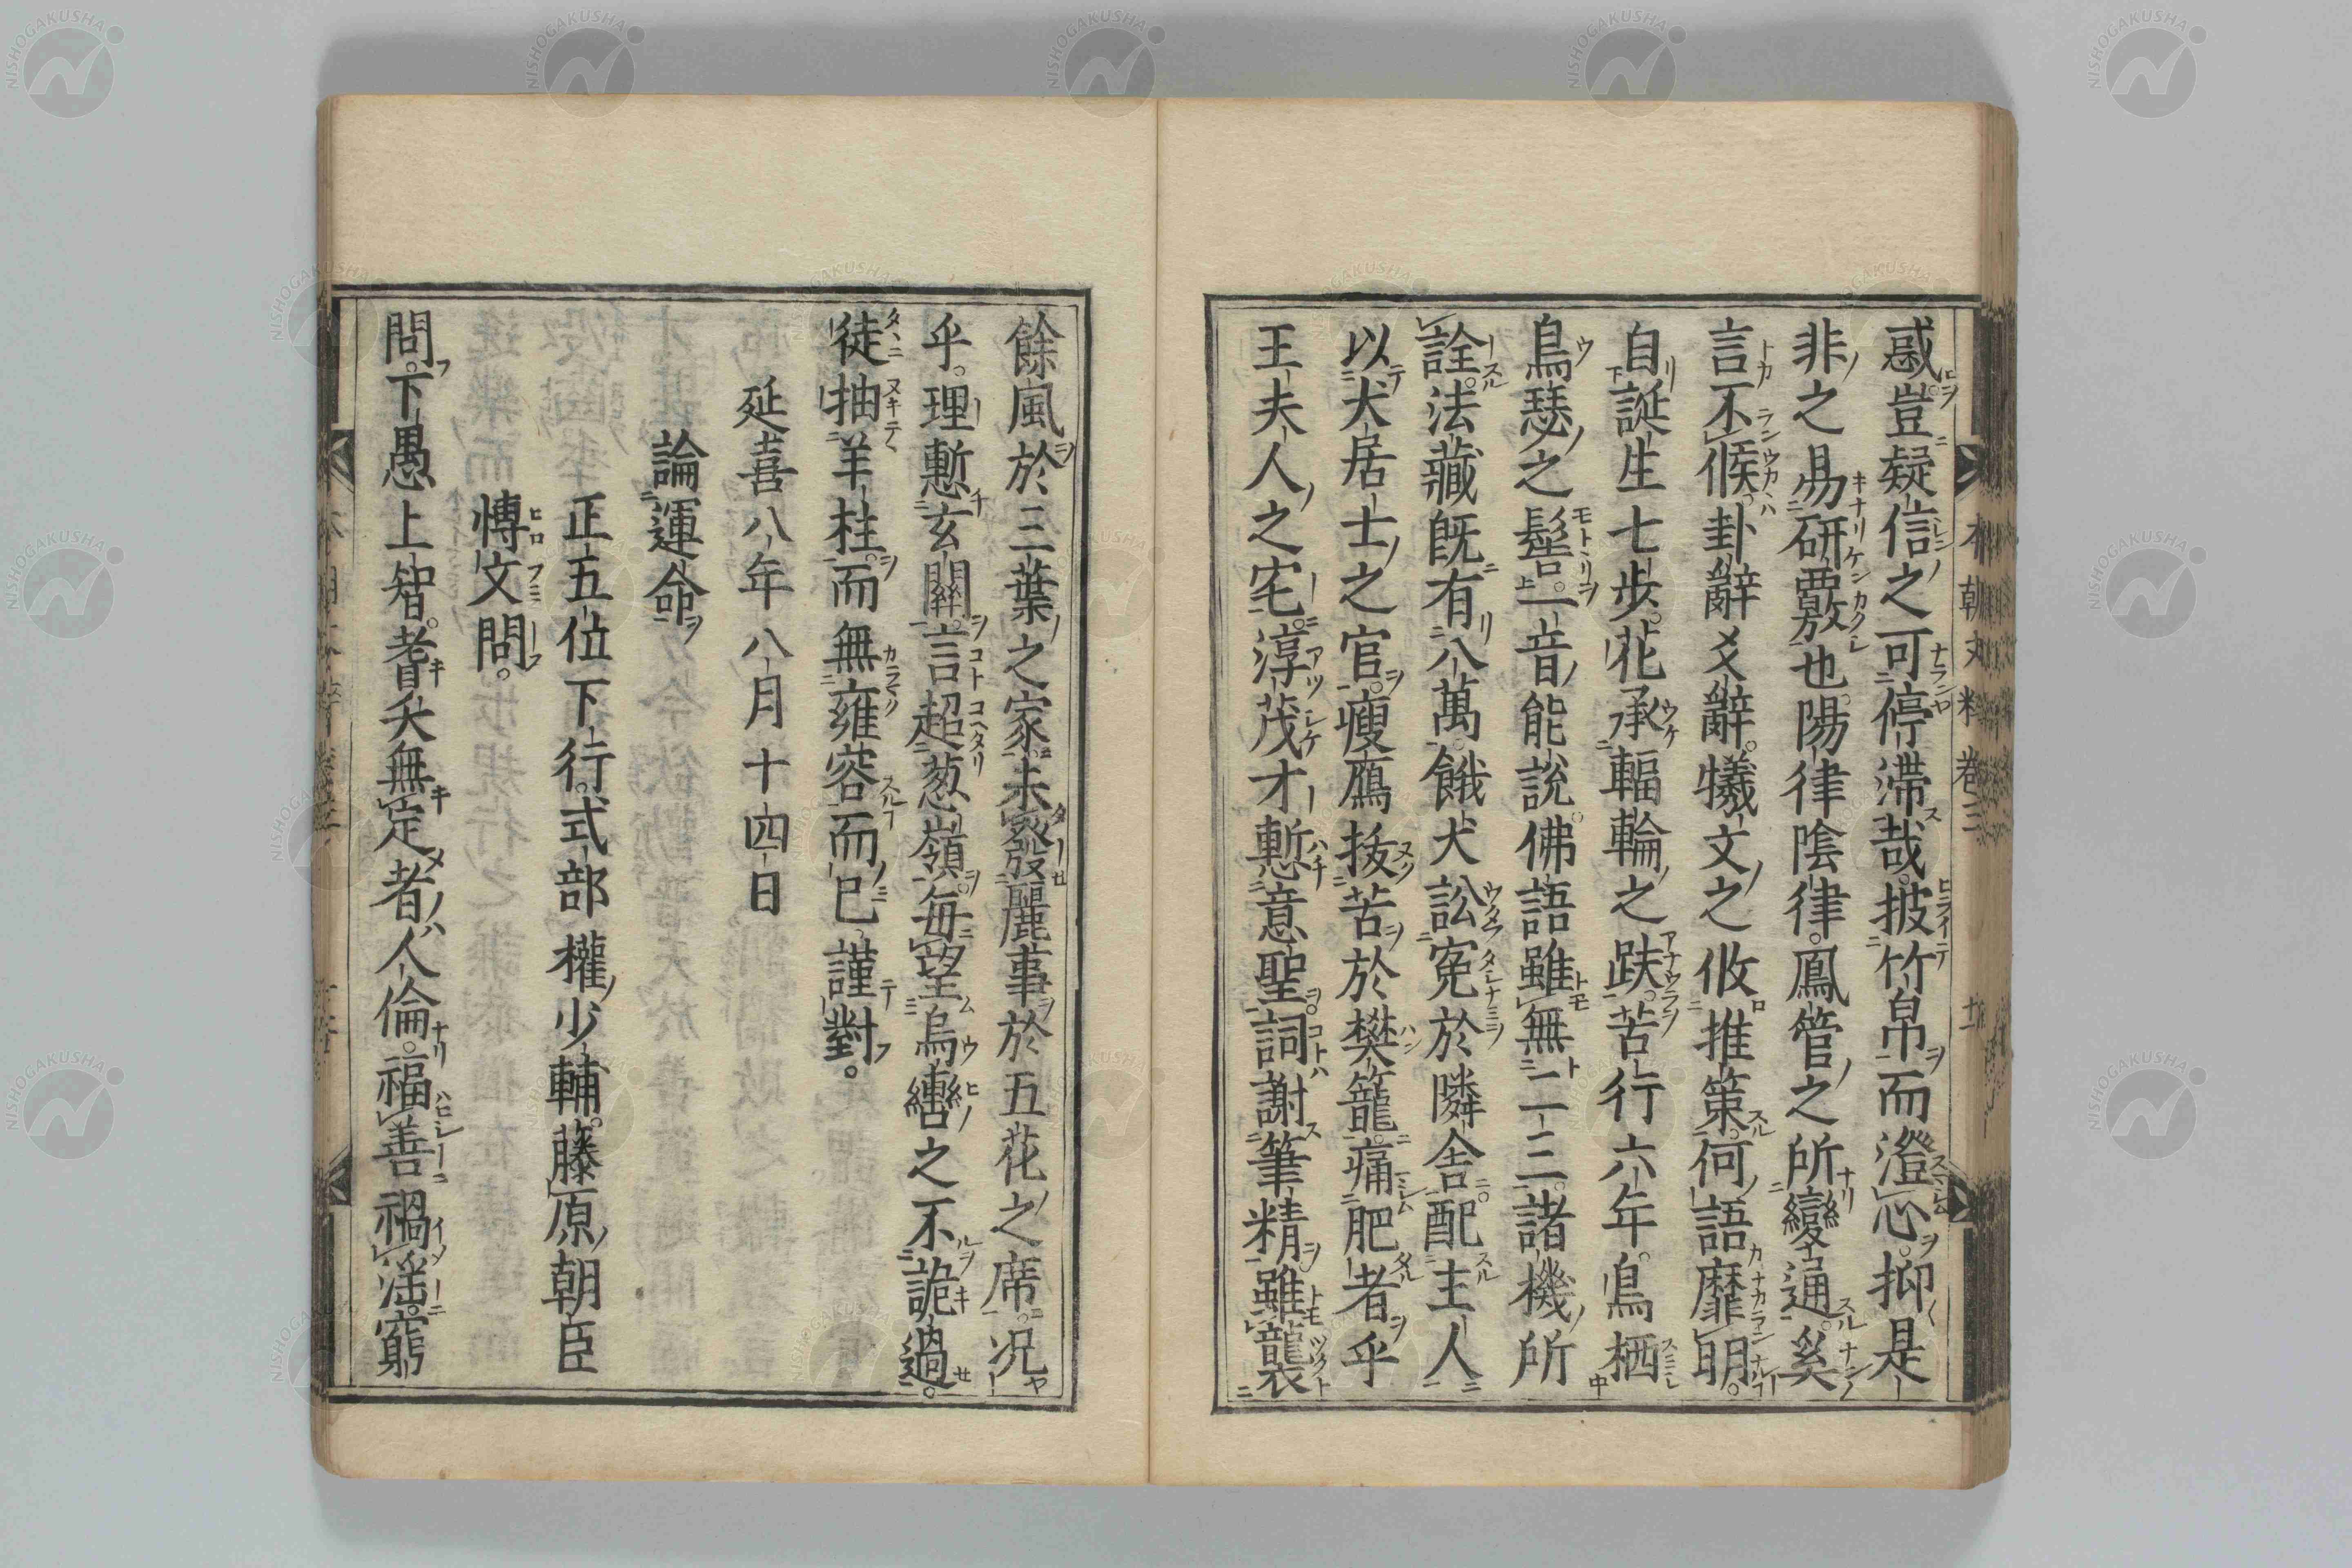 惑豈疑信之可停滞哉披竹帛而澄心抑是
非之易研覈也陽律陰律鳳管之所變通奚
言不候卦辭爻辭犧文之攸推策何語靡明
自誕生七歩花承輻輪之趺苦行六年鳥栖
烏瑟之髻一音能説佛語雖無二三諸機所
詮法藏既有八萬餓犬訟寃於隣舎配主人
以犬居士之官瘦鷹抜苦於樊籠痛肥者乎
王夫人之宅淳茂才慙意聖詞謝筆精雖襲
餘風於三葉之家未發麗事於五花之席况
乎理慙玄關言超葱嶺毎望烏轡之不詭過
徒抽羊柱而無雍容而已謹對。
延喜八年八月十四日
論運命
正五位下行式部權少輔藤原朝臣
博文問。
問下愚上智耆夭無定者人倫福善禍淫窮
本朝文粹卷三